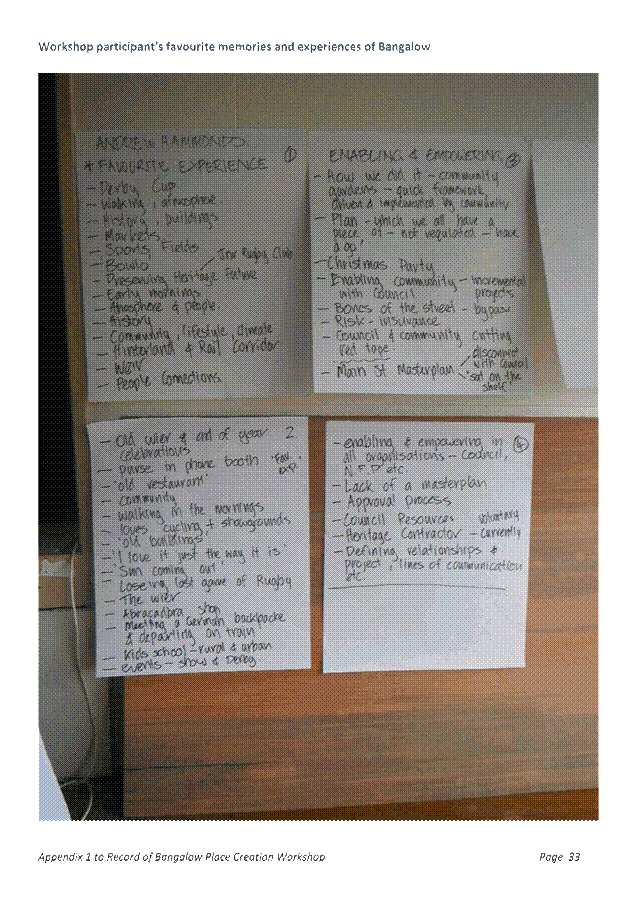 Workshop participant's favourite memories and experiences of Bangalow
ANDREW HAMMONDS
+ FAVOURITE EXPERIENCE ①
- Derby Cup
- Walking, atmosphere.
- History, buildings
- Markets
- Sports Fields
- Bowlo
Jnr Rugby Club
- Preserving Heritage Future
- Early mornings
- Atmosphere & people.
- History
- Community, lifestyle, climate
- Hinterland & Rail Corridor
- Weir
- People Connections
ENABLING & EMPOWERING ③
- How we did it - community
gardens - quick framework,
driven & implemented by community
- Plan - which we all have a
piece of - not regulated - have
a go'
- Christmas Party
- Enabling community - incremental
with Council projects
- Bones of the street - bypass
- Risk - insurance
- Council & community cutting
red tape
- Main St Masterplan
disconnect
with Council
'sat on the
shelf'
- Old wier & end of year 2
celebrations
- purse in phone booth 'Fav.
Exp.
- 'old restaurant'
- community
- walking in the mornings
- loves cycling + showgrounds
- 'old buildings'
- 'I love it just the way it is'
- 'Sun coming out'
- Loseing last game of Rugby
- The wier
- Abracadbra shop
- meeting a German backpacke
& departing on train
- Kids school - rural & urban
- events - show & Derby
- enabling & empowering in ④
all organisations - Council,
N.F.P etc.
- Lack of a masterplan
- Approval process
- Council Resources voluntary
- Heritage Contractor - currently
- Defining relationships &
project, 'lines of communication
etc.
Appendix 1 to Record of Bangalow Place Creation Workshop
Page 33